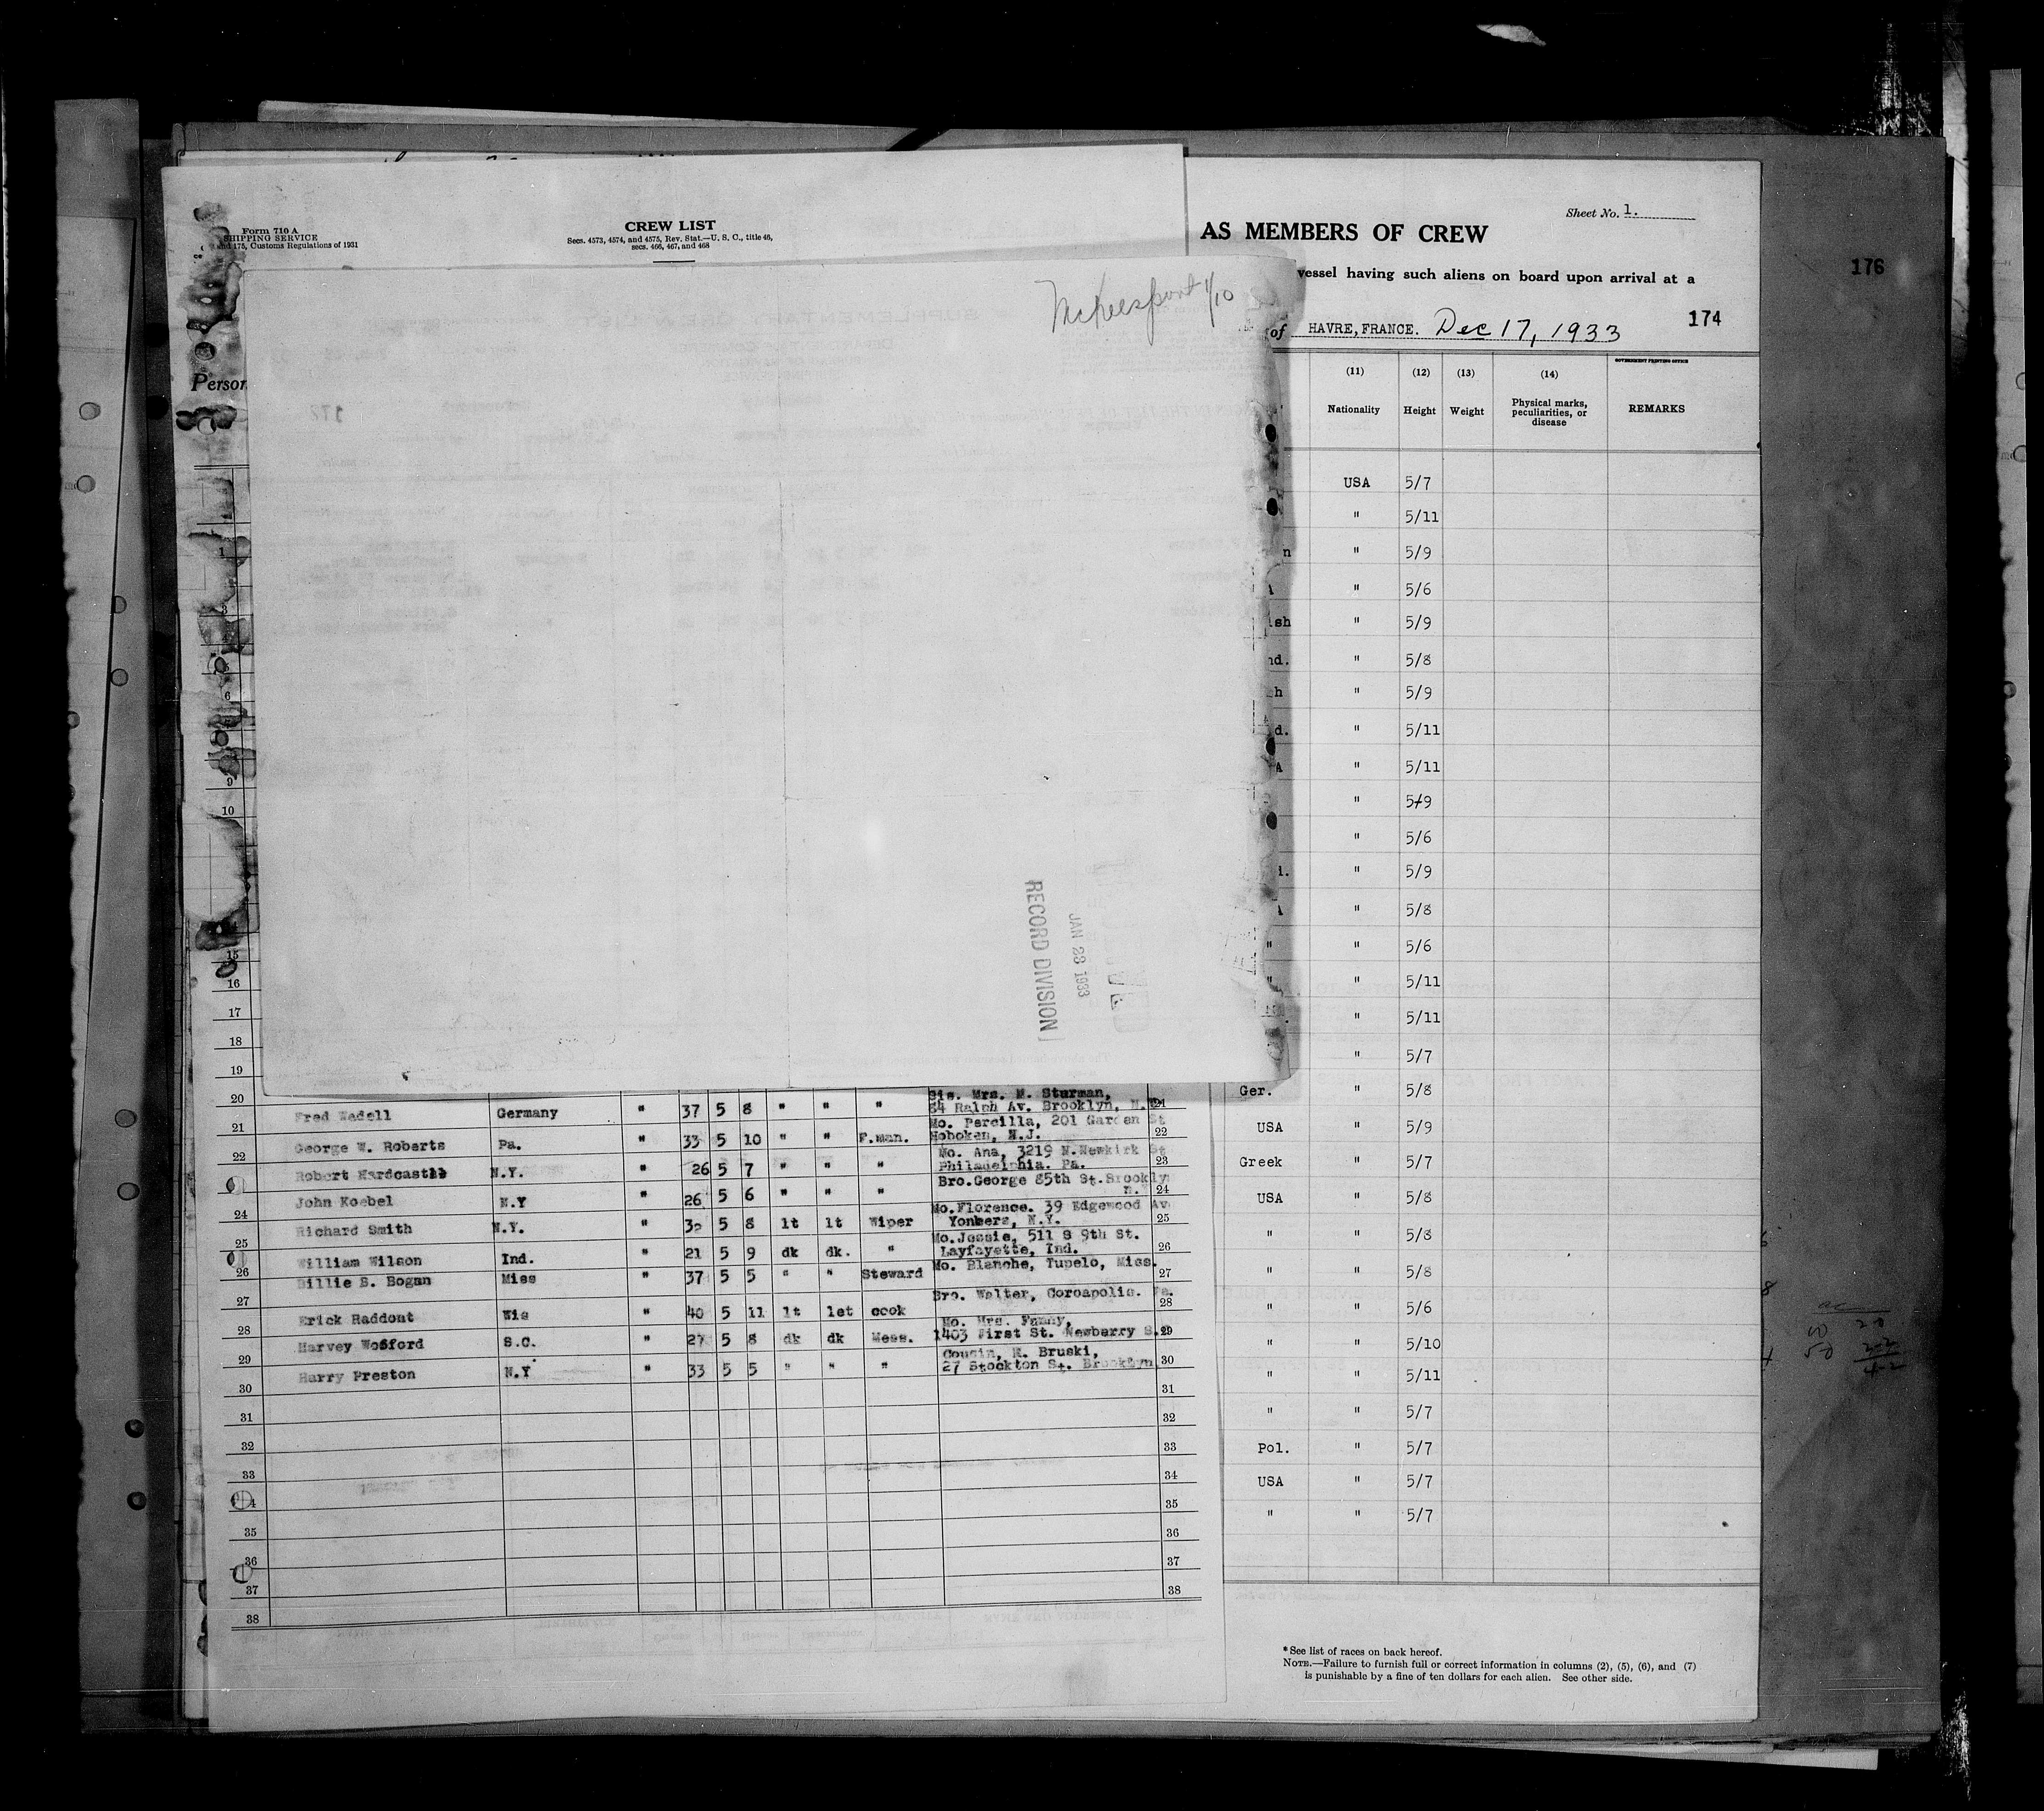 Form 710 A
SHIPPING SERVICE
and 175, Customs Regulations of 1931
CREW LIST
Secs. 4573, 4574, and 4575, Rev. Stat.—U. S. C., title 46,
secs. 466, 467, and 468
Person
McKeesport 1/10
RECORD DIVISION
JAN 23 1933
Sheet No. 1.
AS MEMBERS OF CREW
vessel having such aliens on board upon arrival at a
176
174
of HAVRE, FRANCE. Dec 17, 1933
GOVERNMENT PRINTING OFFICE
(11) (12) (13) (14)
Nationality Height Weight Physical marks, peculiarities, or disease REMARKS
USA 5/7
" 5/11
n " 5/9
" 5/6
ish " 5/9
nd. " 5/8
h " 5/9
d. " 5/11
A " 5/11
" 5/9
" 5/6
i. " 5/9
" 5/8
" " 5/6
" " 5/11
" 5/11
" 5/7
Ger. " 5/8
USA " 5/9
Greek " 5/7
USA " 5/8
" " 5/8
" " 5/8
" " 5/6
" " 5/10
" " 5/11
" " 5/7
Pol. " 5/7
USA " 5/7
" " 5/7
1
3
6
9
10
15
16
17
18
19
20
Sis. Mrs. M. Sturman,
Fred Wedell Germany " 37 5 8 " " " 84 Ralph Av. Brooklyn, N.Y. 21
21
Mo. Percilla, 201 Garden St
George W. Roberts Pa. " 33 5 10 " " F.man. Hoboken, N.J. 22
22
Mo. Ana, 3219 N.Newkirk St
Robert Hardcastle N.Y. " 26 5 7 " " " Philadelphia. Pa. 23
Bro.George 85th St.Brookly
John Koebel N.Y " 26 5 6 " " " n. 24
24
Mo.Florence. 39 Edgewood Av
Richard Smith N.Y. " 30 5 8 lt lt Wiper Yonkers, N.Y. 25
25
Mo.Jessie, 511 S 9th St.
William Wilson Ind. " 21 5 9 dk dk. " Layfayette, Ind. 26
26
Billie S. Bogan Miss " 37 5 5 " " Steward Mo. Blanche, Tupelo, Miss. 27
27
Erick Raddont Wis " 40 5 11 lt let cook Bro. Walter, Coroapolis. Pa. 28
28
Mo. Mrs. Fanny,
Harvey Wofford S.C. " 27 5 8 dk dk Mess. 1403 First St. Newberry S. 29
29
Cousin, R. Bruski,
Harry Preston N.Y " 33 5 5 " " " 27 Stockton St. Brooklyn 30
30 31
31 32
32 33
33 34
35
35 36
36 37
37 38
38
20
50 22
42
* See list of races on back hereof.
NOTE.—Failure to furnish full or correct information in columns (2), (5), (6), and (7)
is punishable by a fine of ten dollars for each alien. See other side.